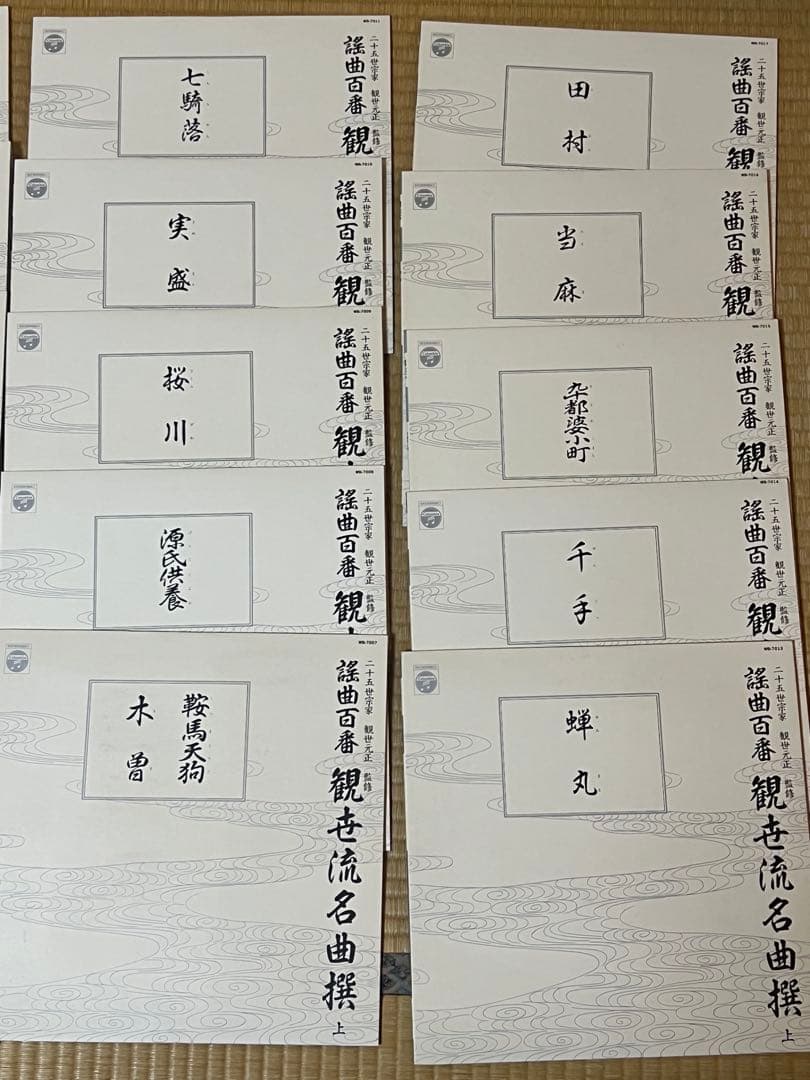 WR-7011
二十五世宗家 観世元正 監修
謡曲百番 観
七騎落
WR-7010
二十五世宗家 観世元正 監修
謡曲百番 観
実盛
WR-7009
二十五世宗家 観世元正 監修
謡曲百番 観
桜川
WR-7008
二十五世宗家 観世元正 監修
謡曲百番 観
源氏供養
WR-7007
二十五世宗家 観世元正 監修
謡曲百番 観世流名曲撰 上
鞍馬天狗
木曽
WR-7017
二十五世宗家 観世元正 監修
謡曲百番 観
田村
二十五世宗家 観世元正 監修
謡曲百番 観
当麻
WR-7015
二十五世宗家 観世元正 監修
謡曲百番 観
卒都婆小町
WR-7014
二十五世宗家 観世元正 監修
謡曲百番 観
千手
WR-7013
二十五世宗家 観世元正 監修
謡曲百番 観世流名曲撰 上
蝉丸